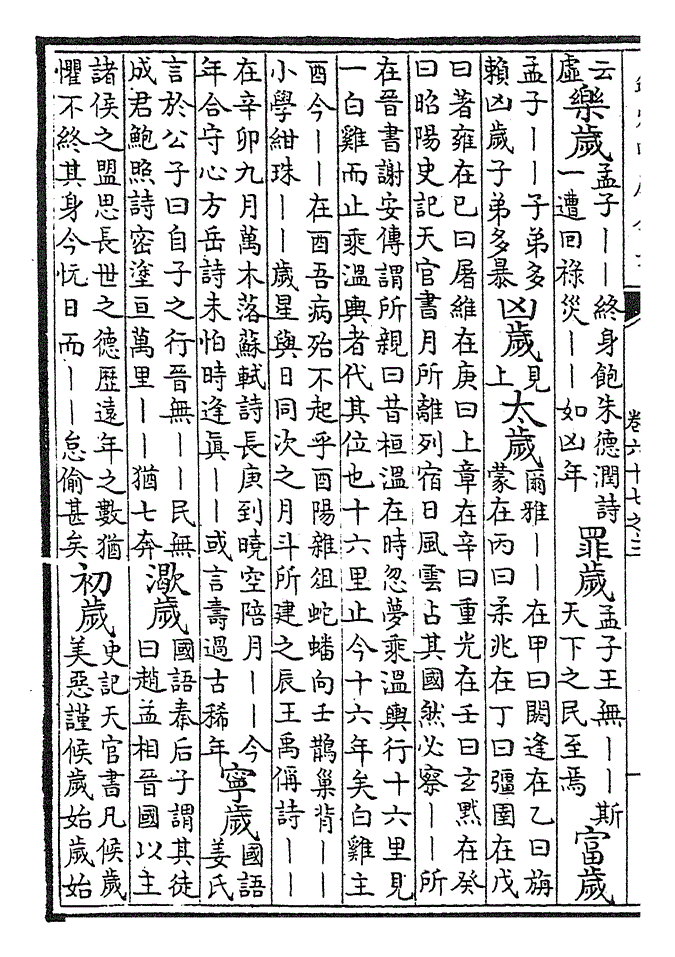 卷六十七之三
云虛樂歲孟子——終身飽朱德潤詩一遭回祿災——如凶年罪歲孟子王無——斯天下之民至焉富歲
孟子——子弟多賴凶歲子弟多暴凶歲見上太歲爾雅——在甲曰閼逢在乙曰旃蒙在丙曰柔兆在丁曰彊圉在戊
曰著雍在巳曰屠維在庚曰上章在辛曰重光在壬曰玄黓在癸曰昭陽史記天官書月所離列宿日風雲占其國然必察——所
在晉書謝安傳謂所親曰昔桓溫在時忽夢乘溫輿行十六里見一白雞而止乘溫輿者代其位也十六里止今十六年矣白雞主
酉今——在酉吾病殆不起乎酉陽雜俎蛇蟠向壬鵲巢背——小學紺珠——歲星與日同次之月斗所建之辰王禹偁詩——
在辛卯九月萬木落蘇軾詩長庚到曉空陪月——今年合守心方岳詩未怕時逢眞——或言壽過古稀年寧歲國語姜氏
言於公子曰自子之行晉無——民無成君鮑照詩密塗亘萬里——猶七奔㵣歲國語秦后子謂其徒曰趙孟相晉國以主
諸侯之盟思長世之德歷遠年之數猶懼不終其身今忨日而——怠偷甚矣初歲史記天官書凡候歲美惡謹候歲始歲始